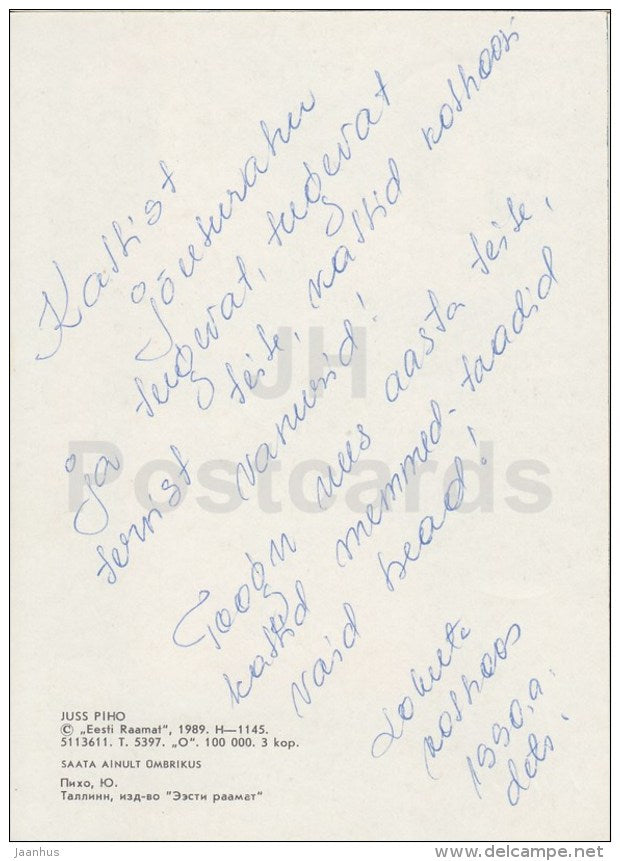 Kallist
jõulurahu
ja tugevat, tugevat
tervist teile, kallid
vanurid!
Toogu uus aasta teile,
kallid memmed-taadid
vaid head!
1990.a.
dets.
JH
Postcards
JUSS PIHO
© „Eesti Raamat", 1989. H—1145.
5113611. T. 5397. „O". 100 000. 3 kop.
SAATA AINULT ÜMBRIKUS
Пихо, Ю.
Таллинн, изд-во "Ээсти раамат"
jaanhus
delcampe.net